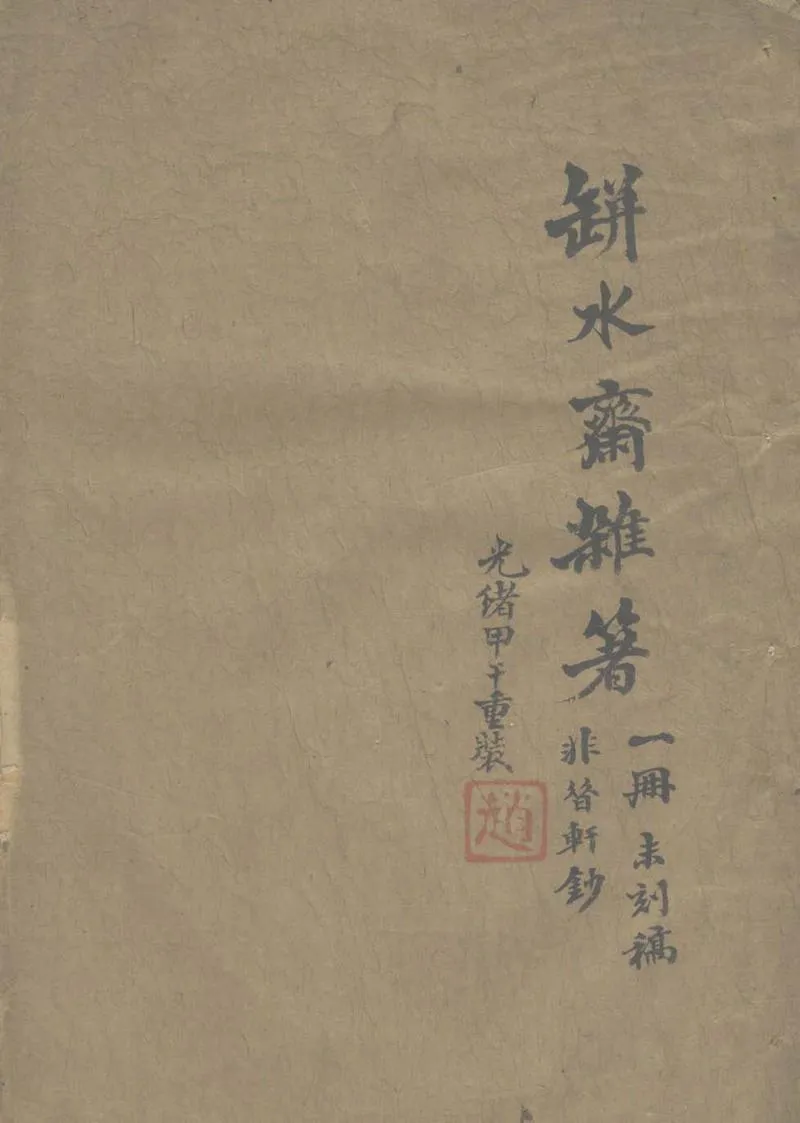 缾水齋雜箸
一冊 未刻稿
非昝軒鈔
光緒甲午重裝
趙